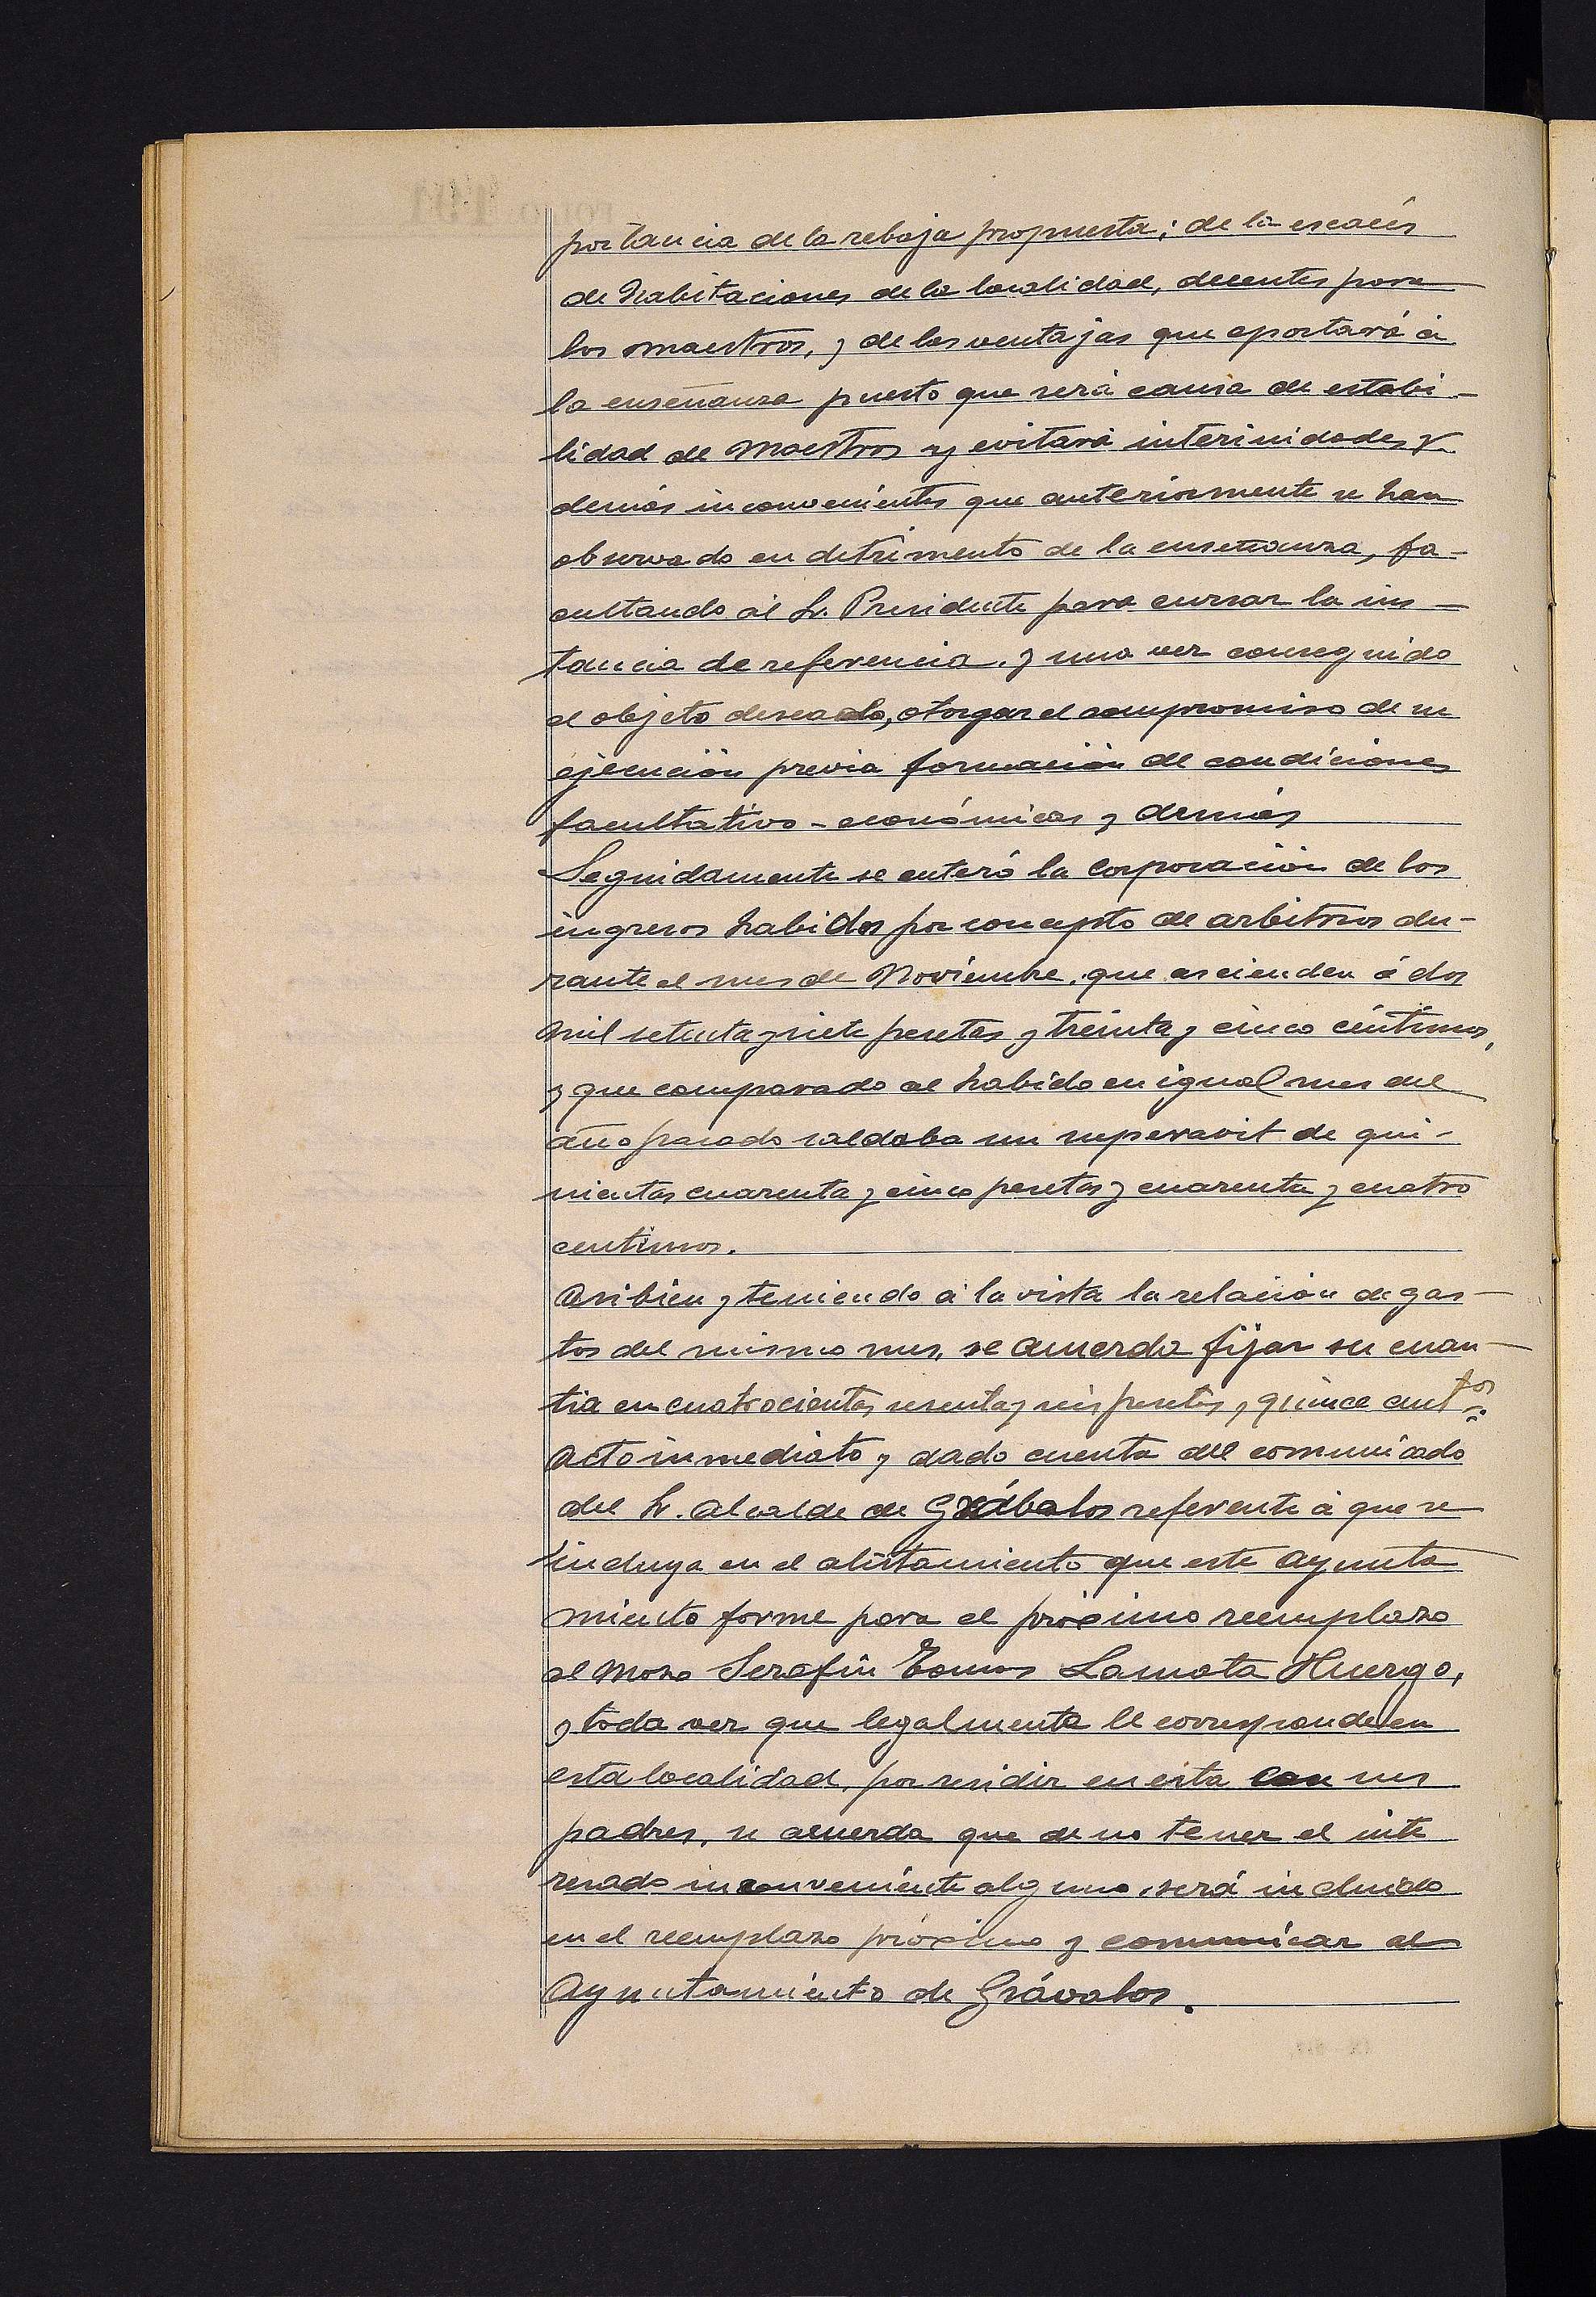 portancia de la rebaja propuesta; de la escacés
de habitaciones de la localidad, decentes para
los maestros, y de las ventajas que aportará á
la enseñanza puesto que será causa de estabi-
lidad de maestros y evitará interinidades y
demás inconvenientes que anteriormente se han
observado en detrimento de la enseñanza, fa-
cultando al Sr. Presidente para cursar la ins-
tancia de referencia, y una vez conseguido
el objeto deseado, otorgar el compromiso de su
ejecución previa formación de condiciones
facultativo-económicas y demás
Seguidamente se enteró la Corporación de los
ingresos habidos por concepto de arbitrios du-
rante el mes de Noviembre, que ascienden á dos
mil setenta y siete pesetas y treinta y cinco céntimos,
y que comparado al habido en igual mes del
año pasado saldaba un superavit de qui-
nientas cuarenta y cinco pesetas y cuarenta y cuatro
centimos.
Asibien y teniendo á la vista la relación de gas-
tos del mismo mes, se acuerda fijar su cuan-
tia en cuatrocientas sesenta y seis pesetas y quince centos.
Acto inmediato y dado cuenta del comunicado
del Sr. Alcalde de Grábalos referente á que se
incluya en el alistamiento que este Ayunta
miento forme para el próximo reemplazo
al mozo Serafín Lamata Huergo,
y toda vez que legalmente le corresponde en
esta localidad, por residir en esta con sus
padres, se acuerda que de no tener el inte
resado inconveniente alguno, será incluido
en el reemplazo próximo y comunicar al
Ayuntamiento de Grávalos.